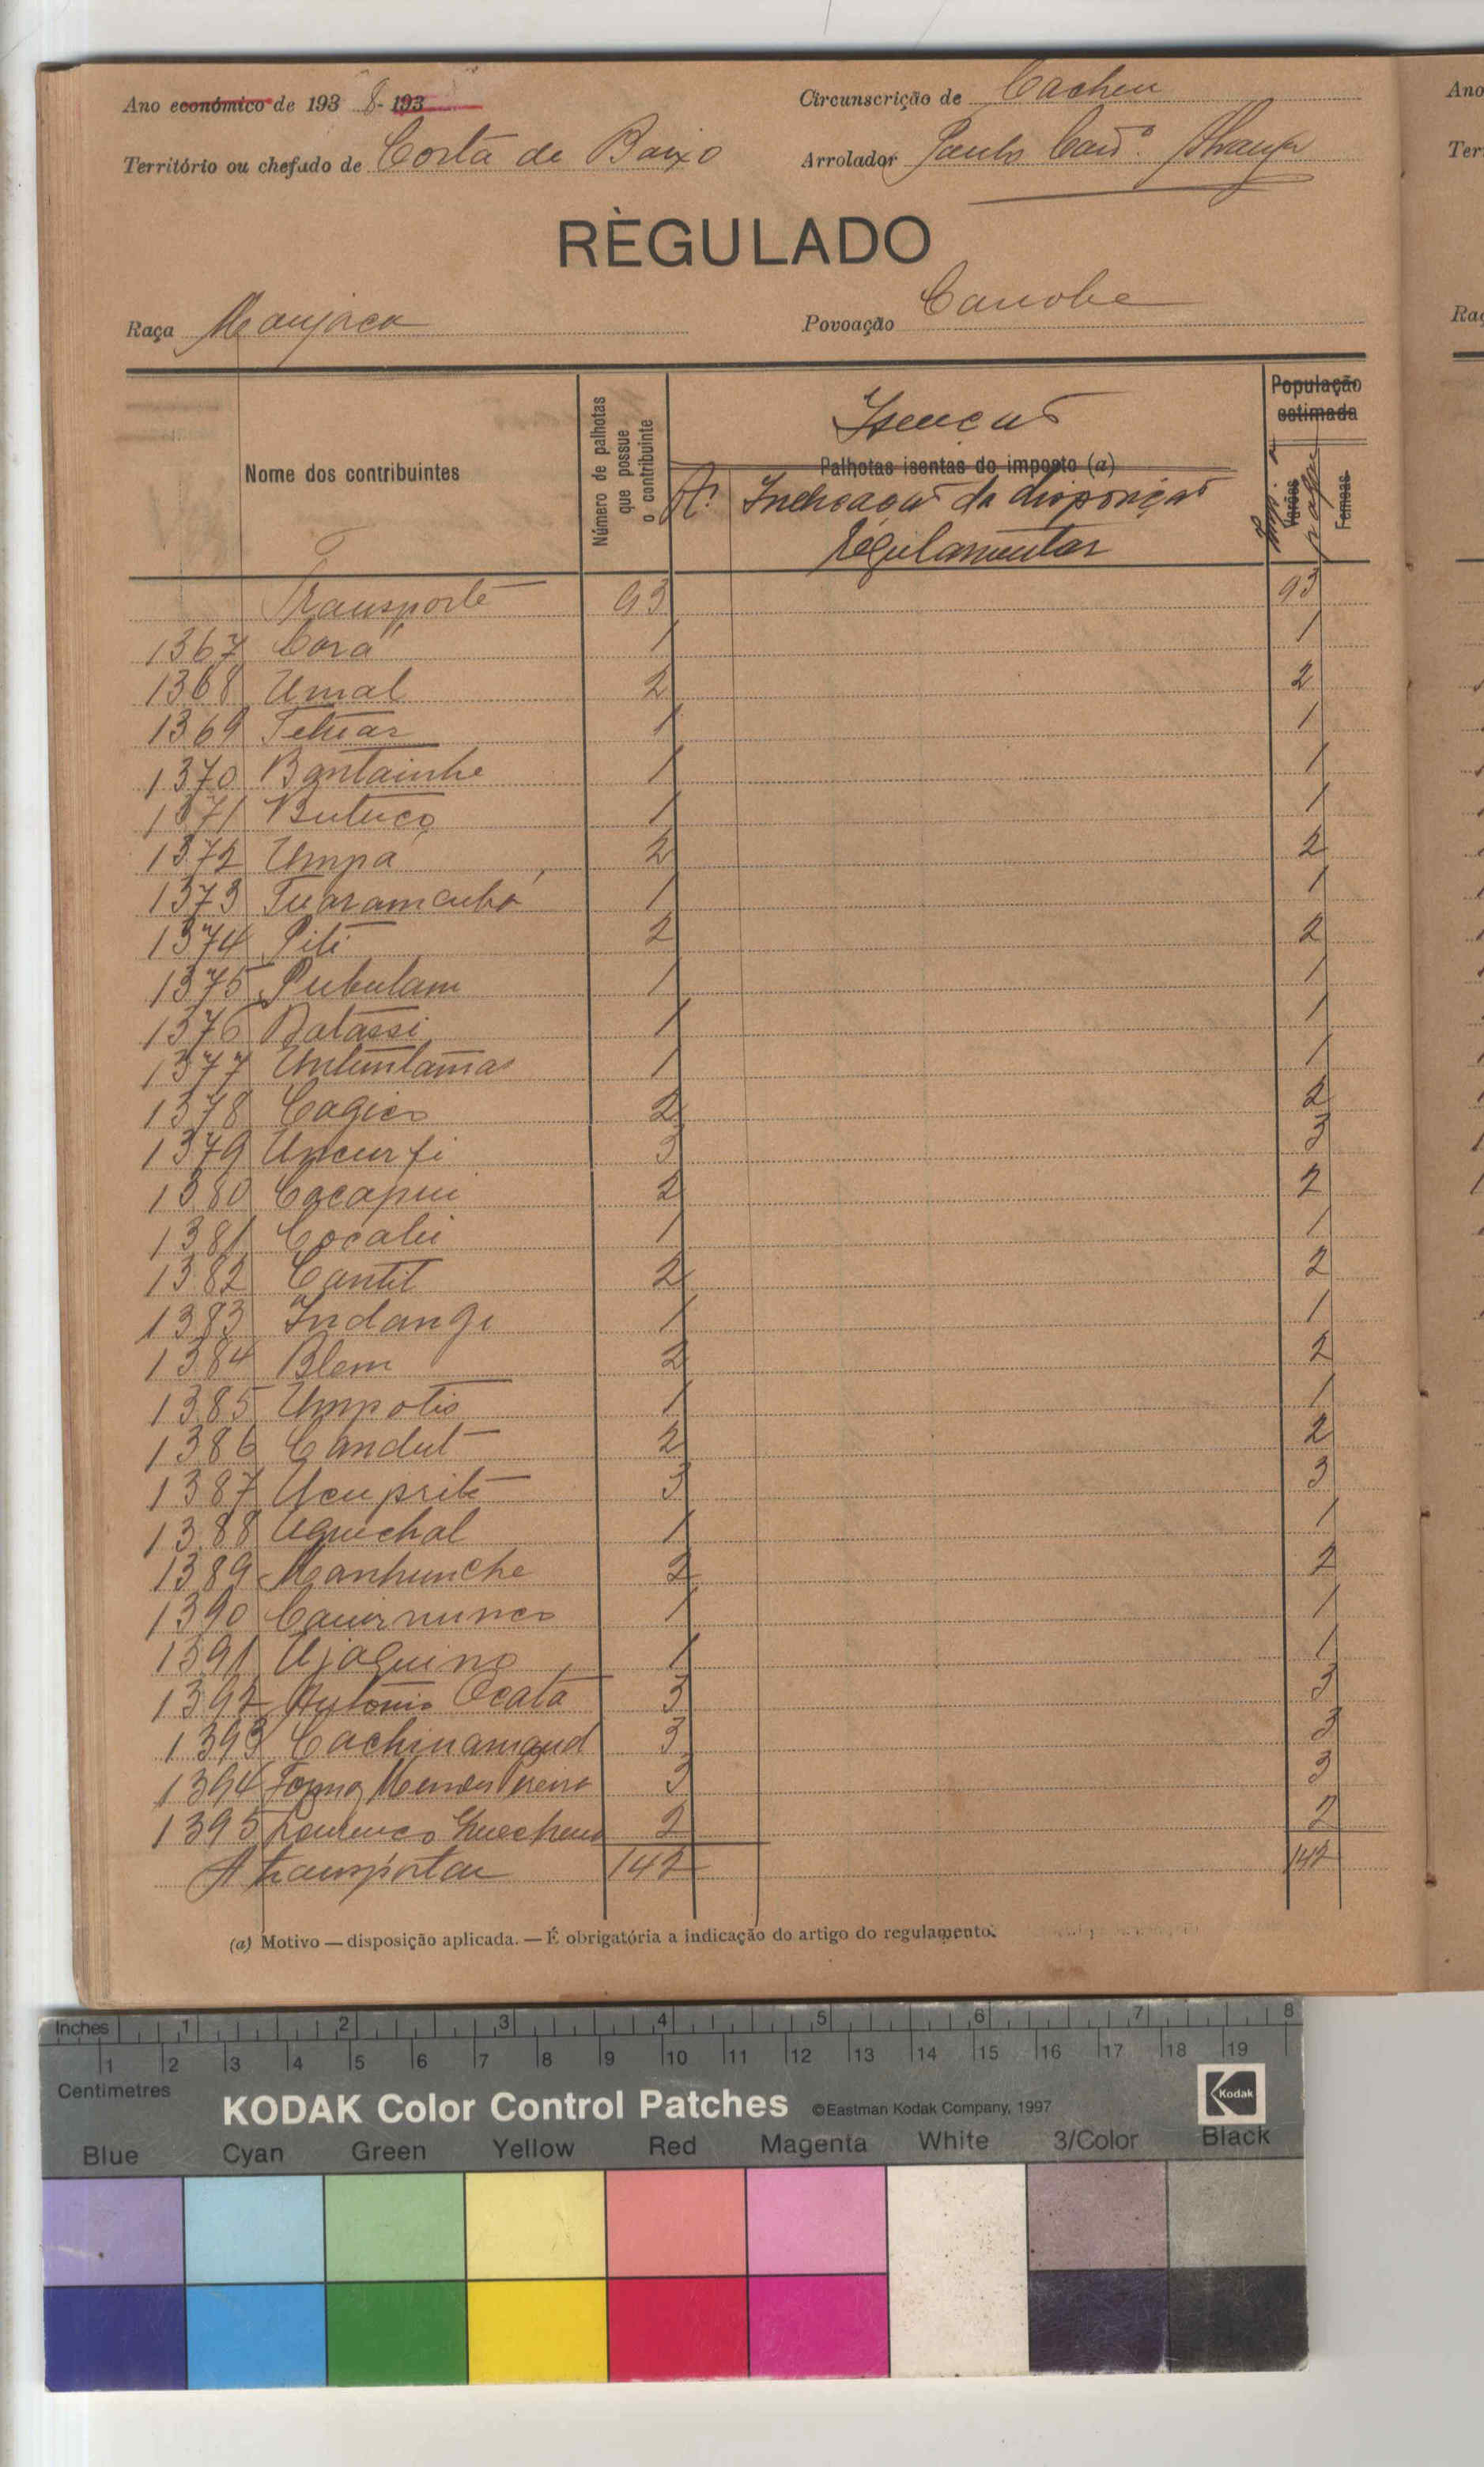 Ano económico de 193 8-193
Circunscrição de Cacheu
Território ou chefado de Costa de Baixo
Arrolador Paulo
RÈGULADO
Raça Manjaca
Povoação Canobe
Nome dos contribuintes
Número de palhotas que possue o contribuinte
Isenção
Palhotas isentas do imposto (a)
Indicação da disposição
Regulamentar
População estimada
Varões
Femeas
Transporte 93 93
1367 Corá 1 1
1368 Umal 2 2
1369 1 1
1370 Bantainhe 1 1
1371 Butuco 1 1
1372 Umpá 2 2
1373 1 1
1374 Piti 2 2
1375 Pubulam 1 1
1376 Batassi 1 1
1377 1 1
1378 Cagico 2 2
1379 Uncurfi 3 3
1380 Cacapui 2 2
1381 1 1
1382 Cantil 2 2
1383 Indangi 1 1
1384 Blem 2 2
1385 Umpotis 1 1
1386 Candut 2 2
1387 Ucuprite 3 3
1388 1 1
1389 Manhunche 2 2
1390 1 1
1391 Ujaquino 1 1
1392 António Ocata 3 3
1393 3 3
1394 Mendes Pereira 3 3
1395 Lourenço 2 2
A transportar 142 142
(a) Motivo — disposição aplicada. — É obrigatória a indicação do artigo do regulamento.
Inches 1 2 3 4 5 6 7 8
1 2 3 4 5 6 7 8 9 10 11 12 13 14 15 16 17 18 19
Centimetres
KODAK Color Control Patches ©Eastman Kodak Company, 1997
Kodak
Blue Cyan Green Yellow Red Magenta White 3/Color Black